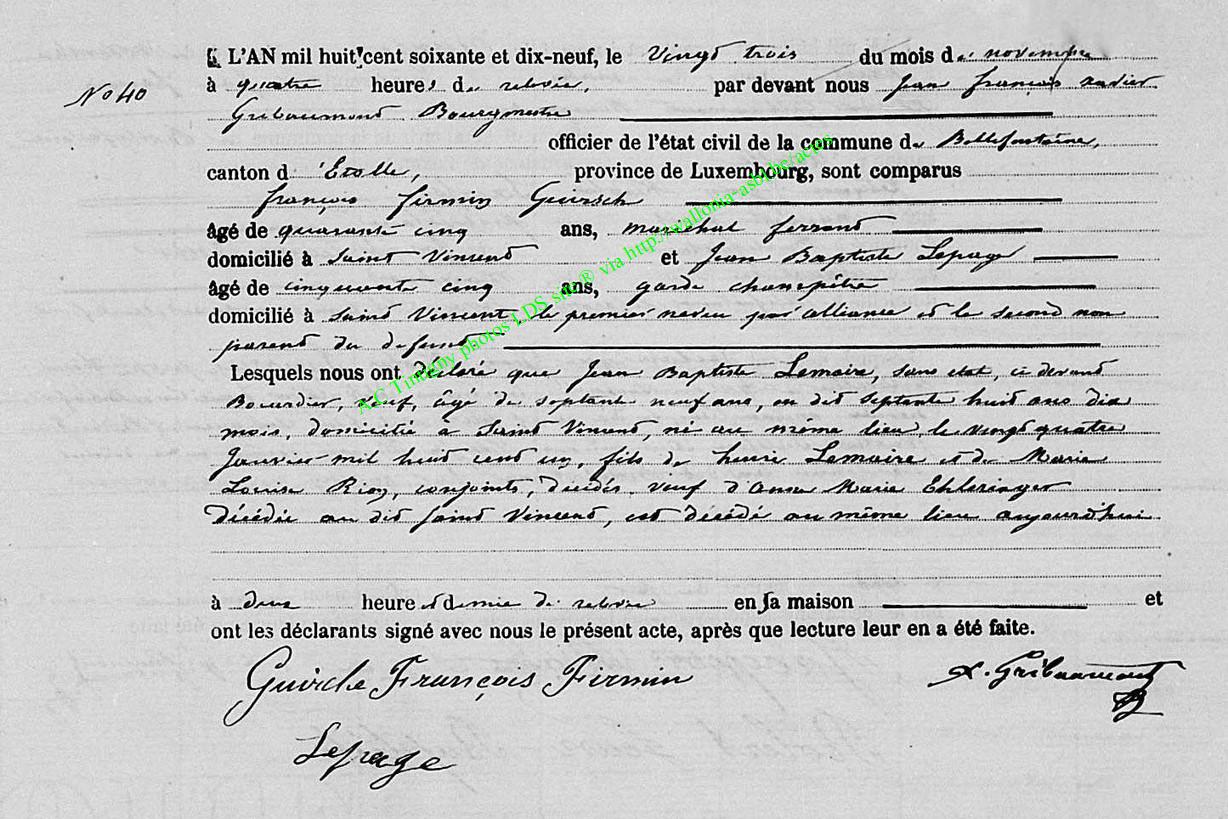 L'AN mil huit cent soixante et dix-neuf, le Vingt trois du mois de novembre
No 40
à quatre heures de relevée, par devant nous Jean françois xavier
Gribaumont Bourgmestre
officier de l'état civil de la commune de Bellefontaine,
canton d'Etalle, province de Luxembourg, sont comparus
françois firmin Guirsch
âgé de quarante cinq ans, maréchal ferrand
domicilié à Saint Vincent et Jean Baptiste Lepage
âgé de cinquante cinq ans, garde champêtre
domicilié à Saint Vincent, le premier neveu par alliance et le second non
parent du defunt
Lesquels nous ont déclaré que Jean Baptiste Lemaire, sans etat, ci devant
veuf, âgé de septante neuf ans, septante huit ans dix
mois, domicilié à Saint Vincent, né au même lieu, le vingt quatre
Janvier mil huit cent un, fils de henri Lemaire et de Marie
Louise conjoints, décédés, veuf d'Anne Marie Ehleringer
décédée au dit Saint Vincent, est décédé au même lieu aujourd'hui
à deux heure et demie de relevée en sa maison et
ont les déclarants signé avec nous le présent acte, après que lecture leur en a été faite.
Guirche François Firmin
X. Gribaumont
Lepage
A.C Tintigny photos LDS site® via http://wallonia-asbl.be/actes